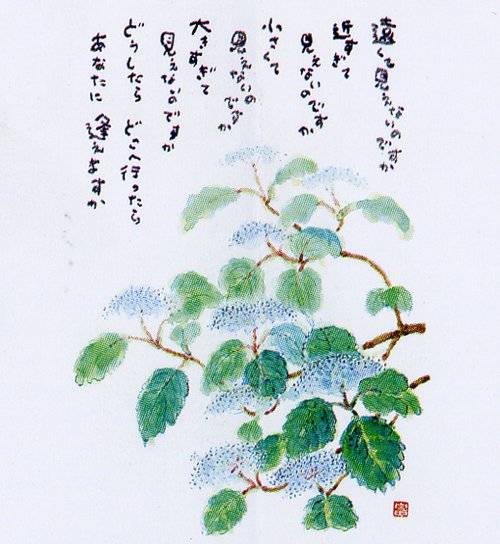 遠くて見えないのですか
近すぎて
見えないのですか
小さくて
見えないのですか
大きすぎて
見えないのですか
どうしたら どこへ行ったら
あなたに 逢えますか